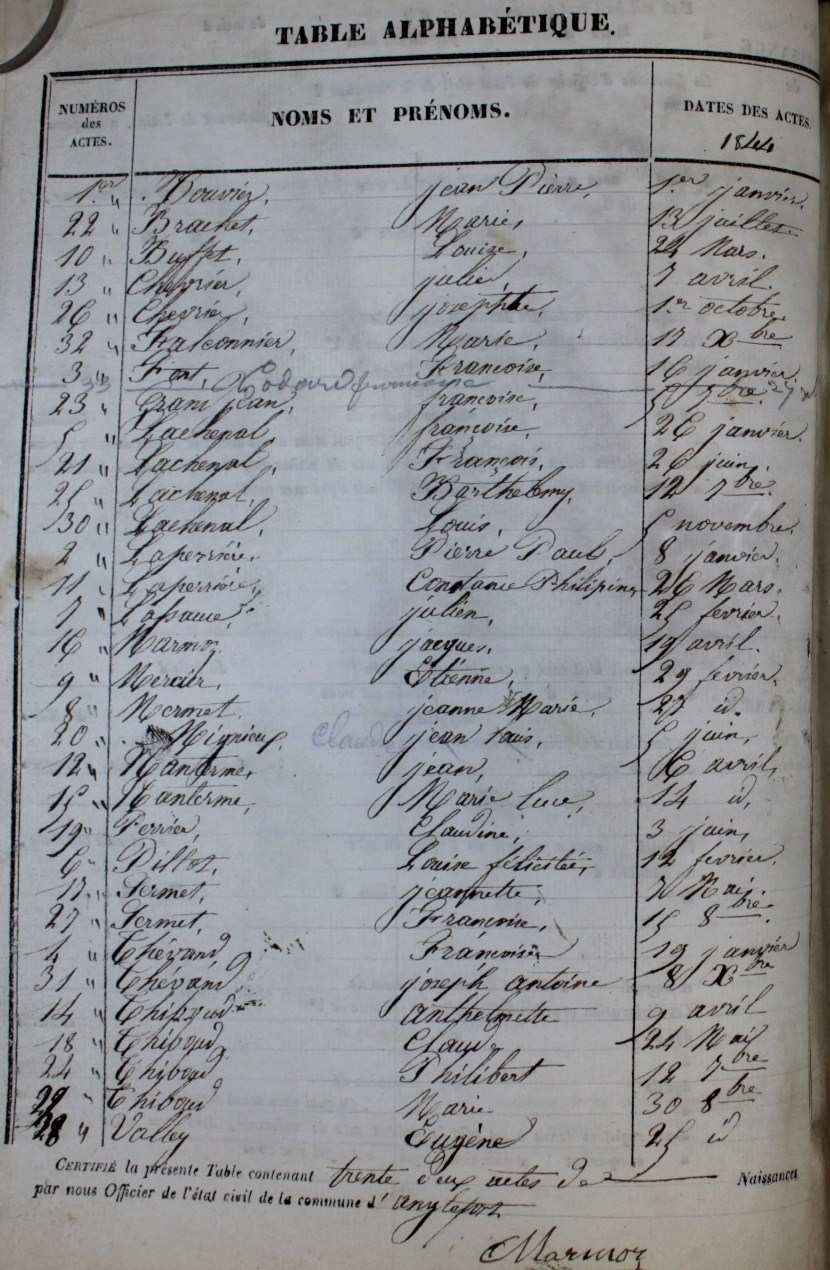 TABLE ALPHABÉTIQUE.
NUMÉROS des ACTES. NOMS ET PRÉNOMS. DATES DES ACTES.
1844
1er " jean Pierre, 1er janvier.
22 " Brachet, Marie, 13 juillet
10 " Buffet, Louise, 24 Mars.
13 " Chevrier, julie, 7 avril.
26 " Chevrier, josephte, 1er octobre.
32 " Falconnier, Marie, 17 Xbre
3 " Font, Françoise, 16 janvier
23 " Grand jean, françoise, 5 7bre.
5 " Lachenal françoise, 26 janvier.
21 " Lachenal, François, 26 juin.
25 " Lachenal, Barthelemy, 12 7bre.
30 " Lachenal, Louis, 5 novembre.
2 " Laperrière, Pierre Paul, 8 janvier.
11 " Laperrière, Constance Philipine, 26 Mars.
7 " julien, 25 fevrier.
16 " Marmoz jacques, 19 avril.
9 " Mercier, Etienne, 29 fevrier.
8 " Mermet jeanne Marie, 27 id.
20 " Claud jean Louis, 5 juin,
12 " Nanterme, jean, 6 avril,
15 " Nanterme, Marie Luce, 14 id,
19 " Perrier, Claudine, 3 juin,
6 " Pillot, Louise félicitée, 12 fevrier.
17 " Termet, jeannette, 7 Mai.
27 " Termet, Francoise, 15 8bre.
4 " Thévand Francoise 19 janvier
31 " Thévand joseph antoine 8 Xbre
14 " Thiboud anthelmette 9 avril
18 " Thiboud Claude 24 Mai
24 " Thiboud Philibert 12 7bre
29 " Thiboud Marie 30 8bre
28 " Valley Eugène 25 id
CERTIFIÉ la présente Table contenant trente deux actes de Naissances
par nous Officier de l'état civil de la commune d'anglefort
Marmoz